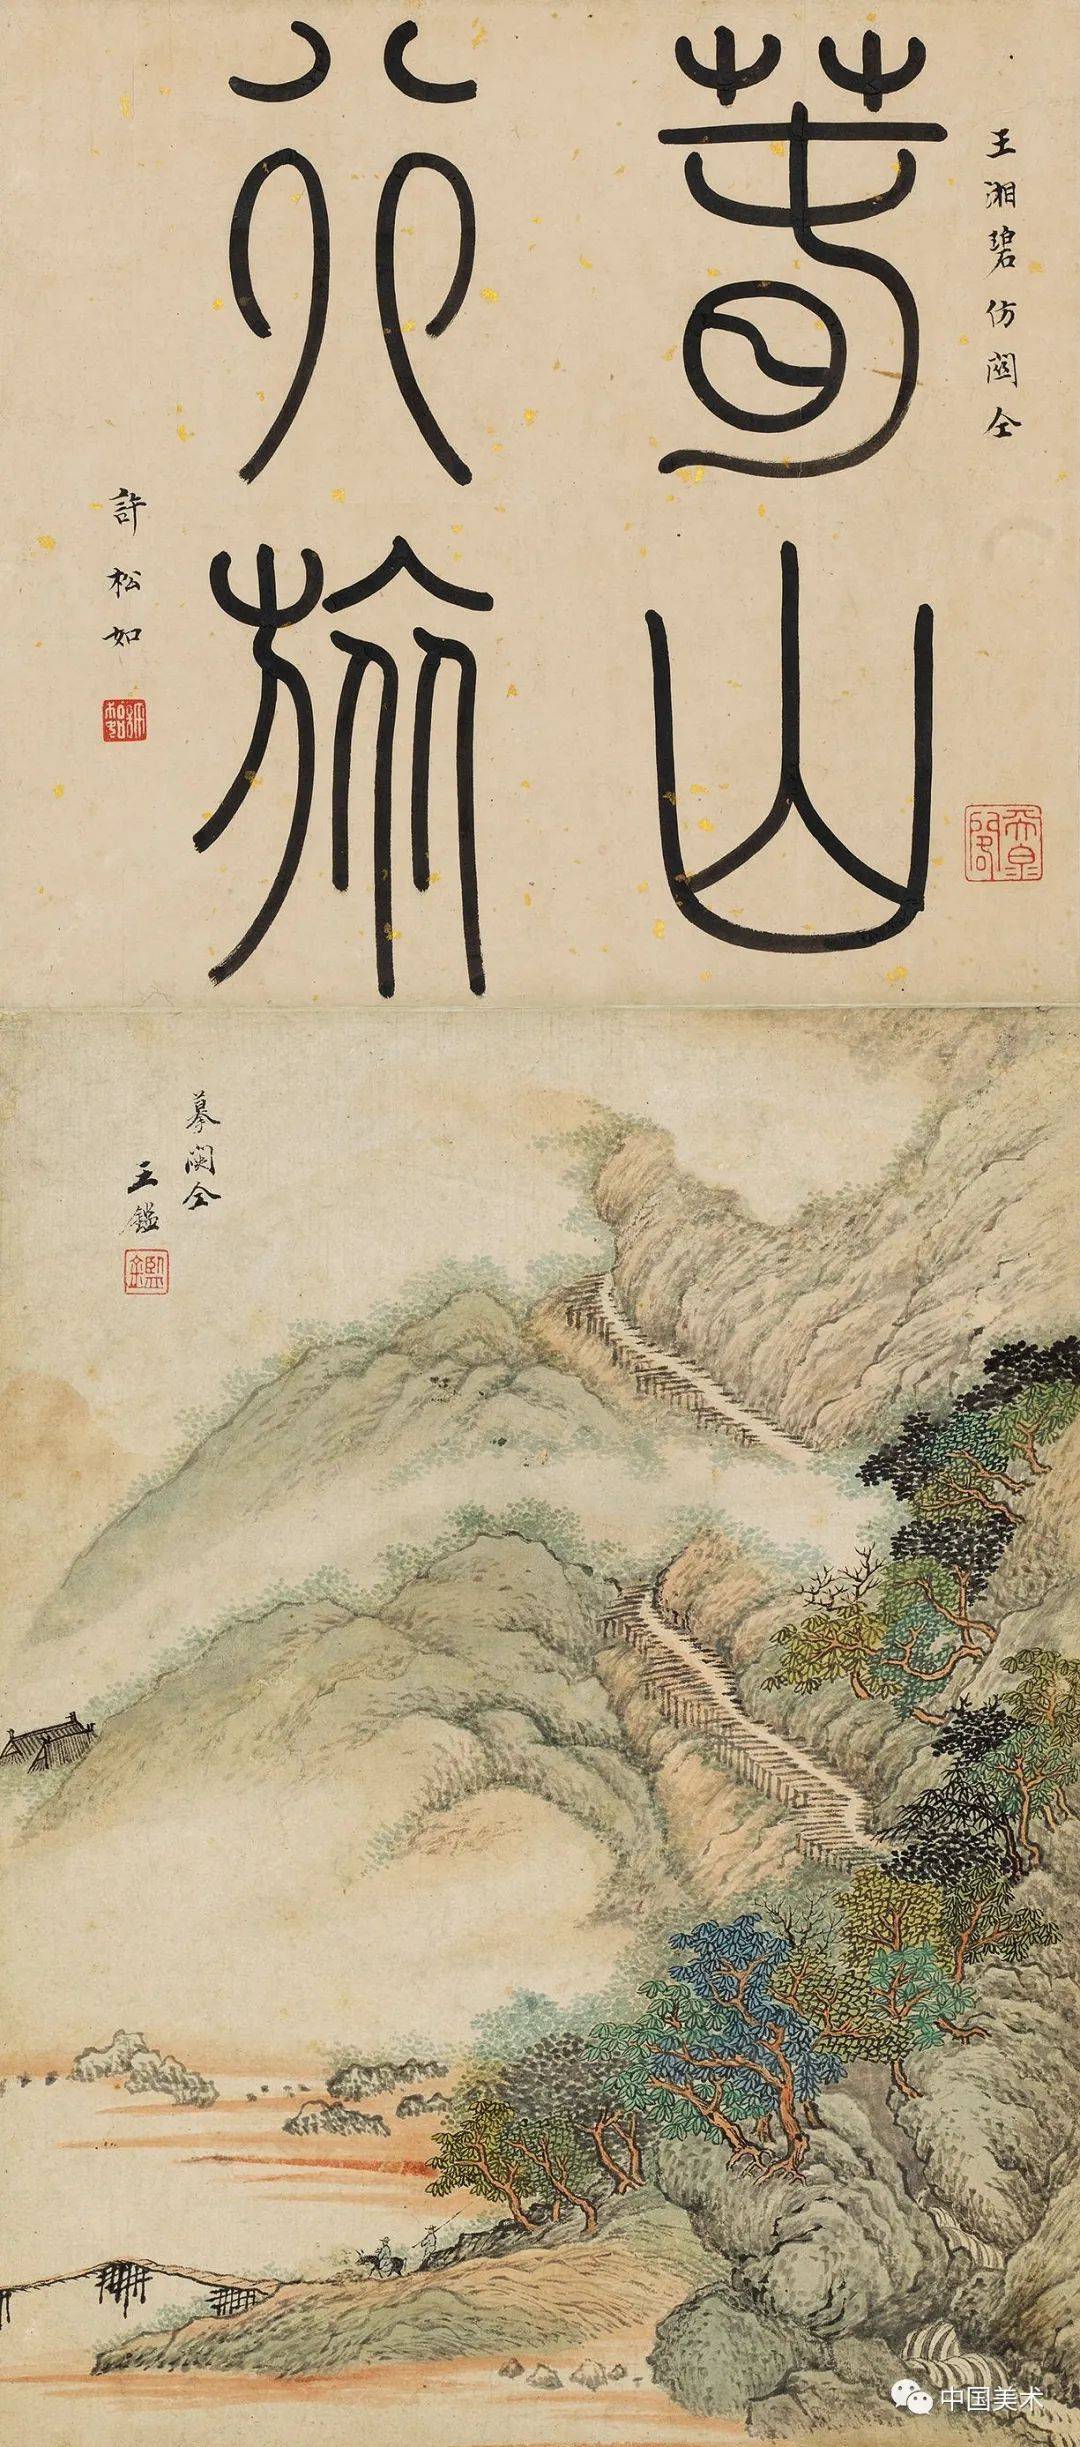 王湘碧仿關仝
萅山
行旅
許松如
摹關仝
王鑑
鑑
中国美术